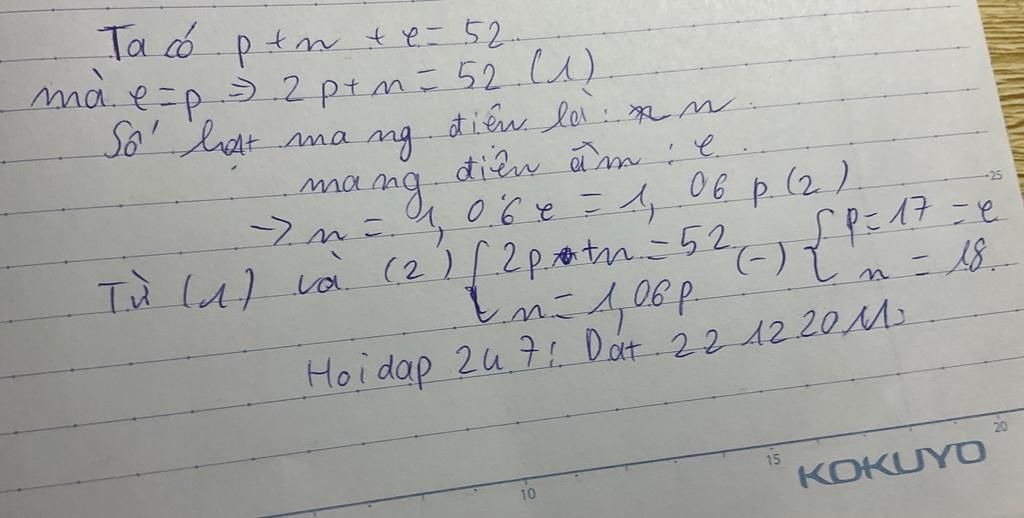 Ta có p + n + e = 52
mà e = p => 2p + n = 52 (1)
Số hạt mang điện là: n
mang điện âm : e
-> n = 1,06e = 1,06p (2)
Từ (1) và (2) { 2p + n = 52 (-) { p = 17 = e
n = 1,06p n = 18.
Hoidap 247: Dat 22122011.
25
10 15 20
KOKUYO